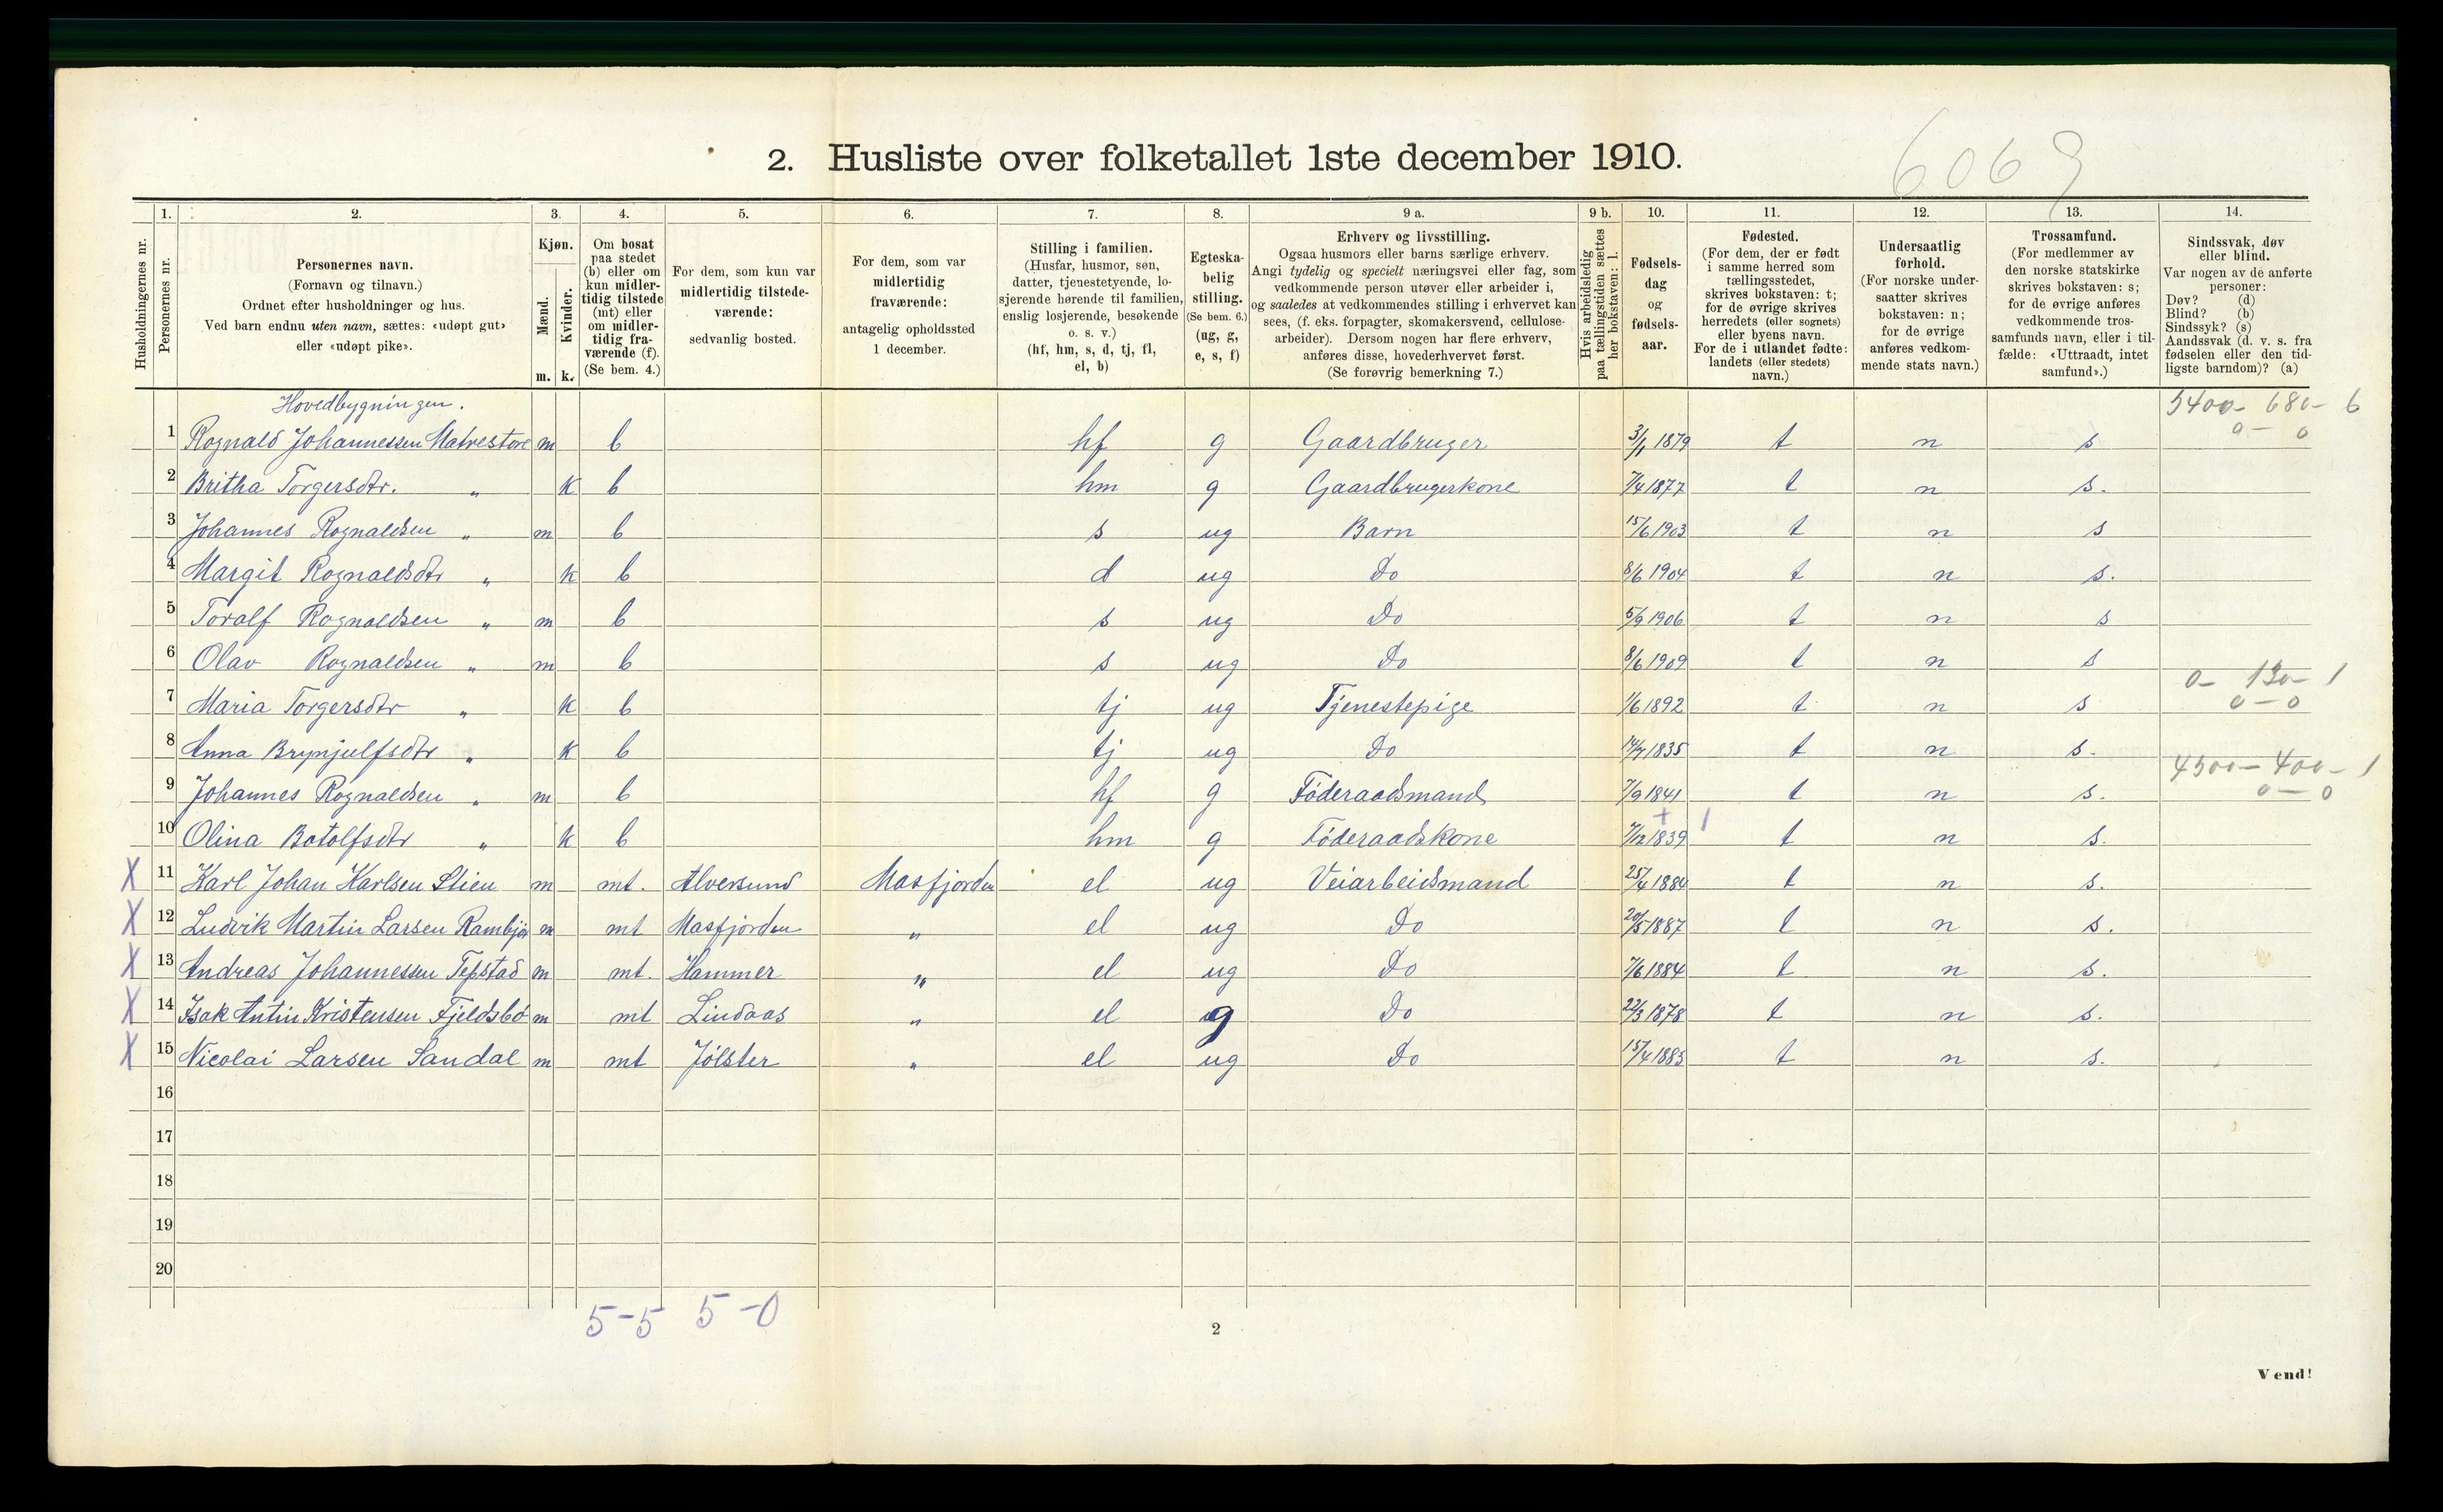 6069
2. Husliste over folketallet 1ste december 1910.
1. 2. 3. 4. 5. 6. 7. 8. 9 a. 9 b. 10. 11. 12. 13. 14.
Husholdningernes nr.
Personernes nr.
Personernes navn.
(Fornavn og tilnavn.)
Ordnet efter husholdninger og hus.
Ved barn endnu uten navn, sættes: «udøpt gut»
eller «udøpt pike».
Kjøn.
Mænd.
Kvinder.
m. k.
Om bosat
paa stedet
(b) eller om
kun midler-
tidig tilstede
(mt) eller
om midler-
tidig fra-
værende (f).
(Se bem. 4.)
For dem, som kun var
midlertidig tilstede-
værende:
sedvanlig bosted.
For dem, som var
midlertidig
fraværende:
antagelig opholdssted
1 december.
Stilling i familien.
(Husfar, husmor, søn,
datter, tjenestetyende, lo-
sjerende hørende til familien,
enslig losjerende, besøkende
o. s. v.)
(hf, hm, s, d, tj, fl,
el, b)
Egteska-
belig
stilling.
(Se bem. 6.)
(ug, g,
e, s, f)
Erhverv og livsstilling.
Ogsaa husmors eller barns særlige erhverv.
Angi tydelig og specielt næringsvei eller fag, som
vedkommende person utøver eller arbeider i,
og saaledes at vedkommendes stilling i erhvervet kan
sees, (f. eks. forpagter, skomakersvend, cellulose-
arbeider). Dersom nogen har flere erhverv,
anføres disse, hovederhvervet først.
(Se forøvrig bemerkning 7.)
Hvis arbeidsledig
paa tællingstiden sættes
her bokstaven: l.
Fødsels-
dag
og
fødsels-
aar.
Fødested.
(For dem, der er født
i samme herred som
tællingsstedet,
skrives bokstaven: t;
for de øvrige skrives
herredets (eller sognets)
eller byens navn.
For de i utlandet fødte:
landets (eller stedets)
navn.)
Undersaatlig
forhold.
(For norske under-
saatter skrives
bokstaven: n;
for de øvrige
anføres vedkom-
mende stats navn.)
Trossamfund.
(For medlemmer av
den norske statskirke
skrives bokstaven: s;
for de øvrige anføres
vedkommende tros-
samfunds navn, eller i til-
fælde: «Uttraadt, intet
samfund».)
Sindssvak, døv
eller blind.
Var nogen av de anførte
personer:
Døv? (d)
Blind? (b)
Sindssyk? (s)
Aandssvak (d. v. s. fra
fødselen eller den tid-
ligste barndom)? (a)
Hovedbygningen. 5400- 680- 6
1 Rognald Johannessen Matrestore m b hf g Gaardbruger 3/1 1879 t n s 0- 0
2 Britha Torgersdtr. " k b hm g Gaardbrugerkone 7/4 1877 t n s.
3 Johannes Rognaldsen " m b s ug Barn 15/6 1903 t n s
4 Margit Rognaldsdtr " k b d ug Do 8/6 1904 t n s.
5 Toralf Rognaldsen " m b s ug Do 5/9 1906 t n s
6 Olav Rognaldsen " m b s ug Do 8/6 1909 t n s
0- 130- 1
7 Maria Torgersdtr " k b tj ug Tjenestepige 1/6 1892 t n s 0-0
8 Anna Brynjulfsdtr " k b tj ug Do 14/7 1835 t n s.
4500- 400- 1
9 Johannes Rognaldsen " m b hf g Föderaadsmand 7/9 1841 t n s. 0-0
10 Olina Botolfsdtr " k b hm g Föderaadskone 7/12 1839 t n s.
X 11 Karl Johan Karlsen Stien m mt. Alversund Masfjorden el ug Veiarbeidsmand 25/4 1884 t n s.
X 12 Ludvik Martin Larsen Rambjør m mt Masfjorden " el ug Do 20/5 1887 t n s.
X 13 Andreas Johannessen Tepstad m mt. Hammer " el ug Do 7/6 1884 t n s.
X 14 Isak Antin Kristensen Fjeldsbö m mt Lindaas " el g Do 22/3 1878 t n s.
X 15 Nicolai Larsen Sandal m mt Jölster " el ug Do 15/4 1885 t n s.
16
17
18
19
20
5-5 5-0
2
Vend!